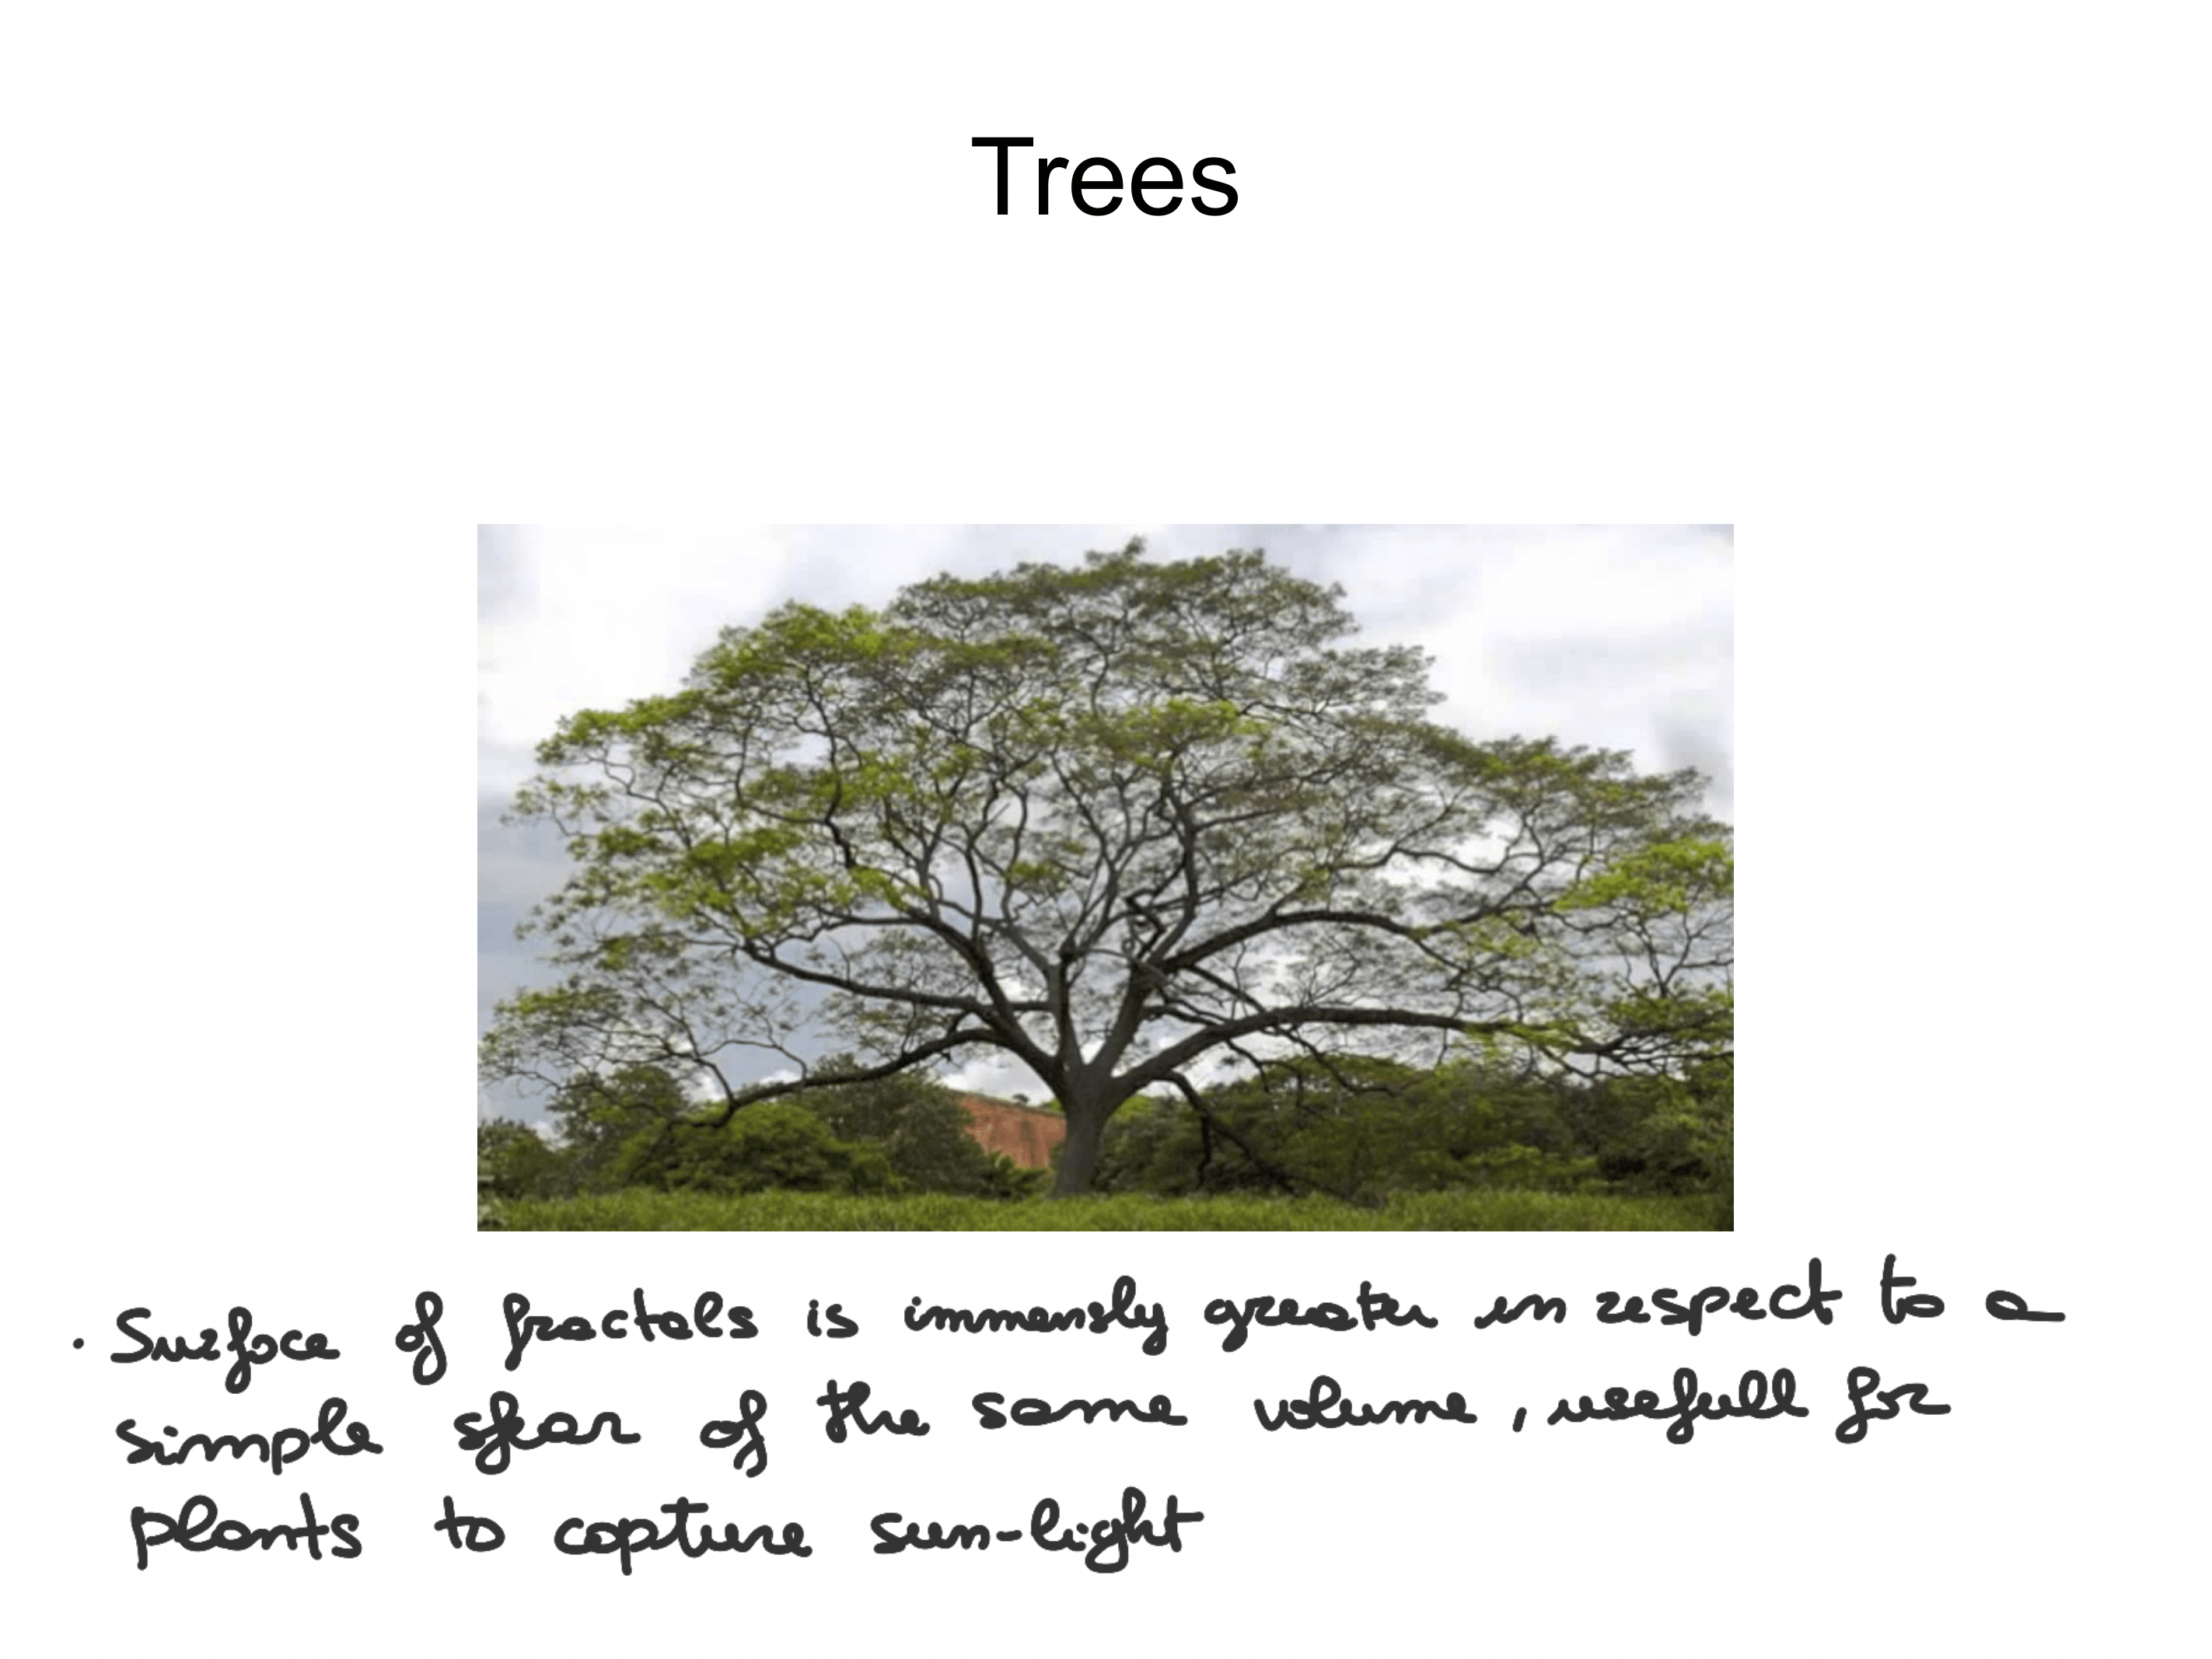 Trees
· Surface of fractals is immensly greater in respect to a
simple sfear of the same volume, usefull for
plants to capture sun-light